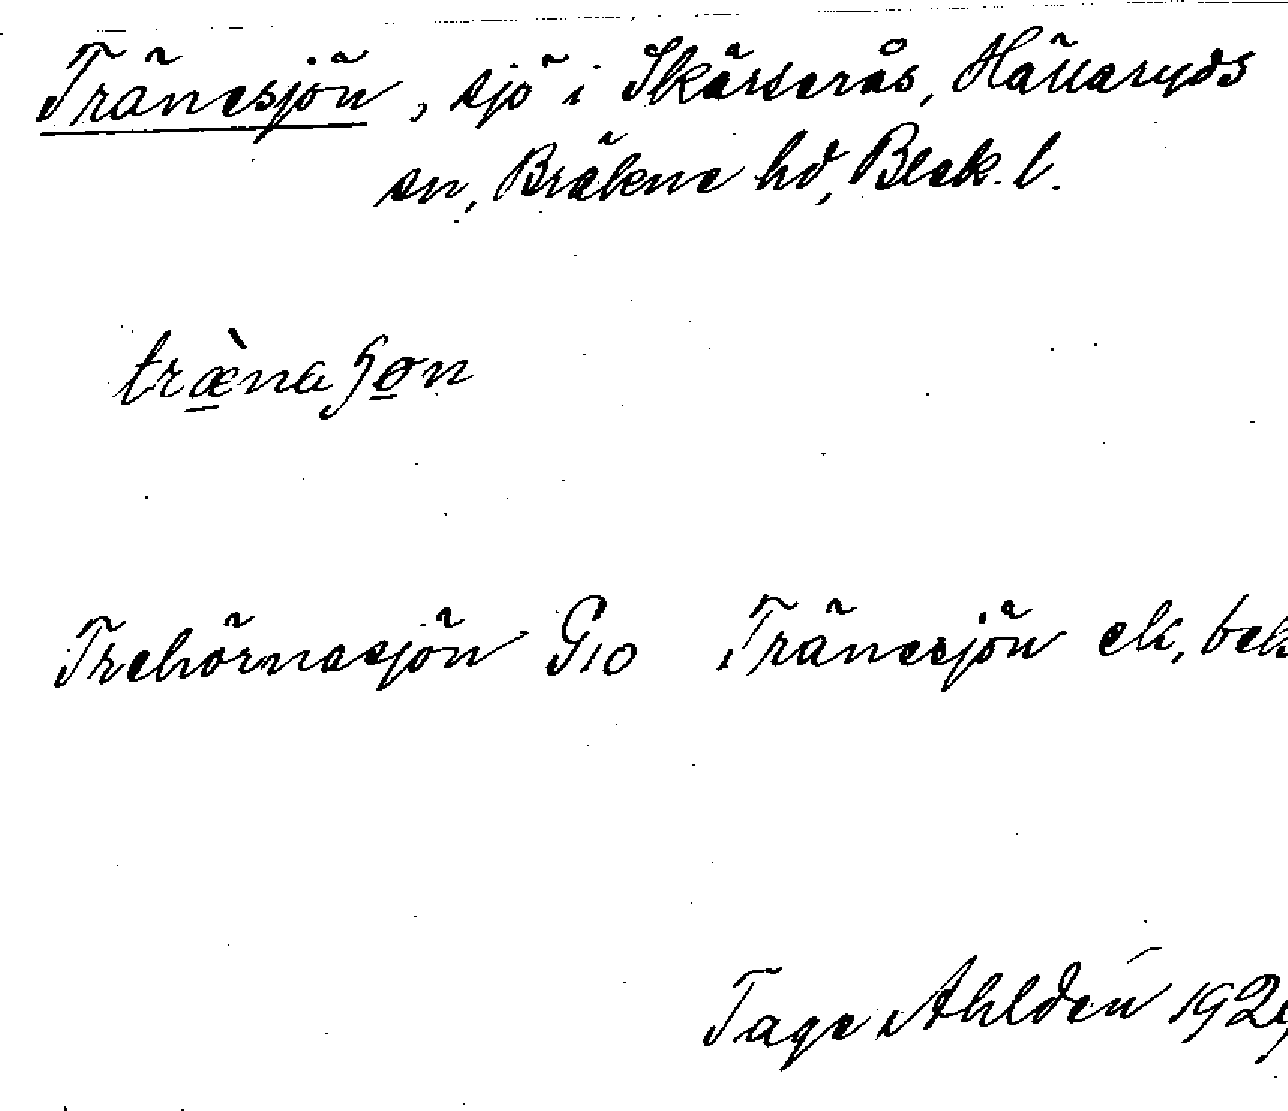 Tränesjön, sjö i Skärserås, Hällaryds
sn, Bräkne hd, Blek. l.
træ̀naʃøn
Trehörnasjön G10 Tränesjön ek,
Tage Ahldén